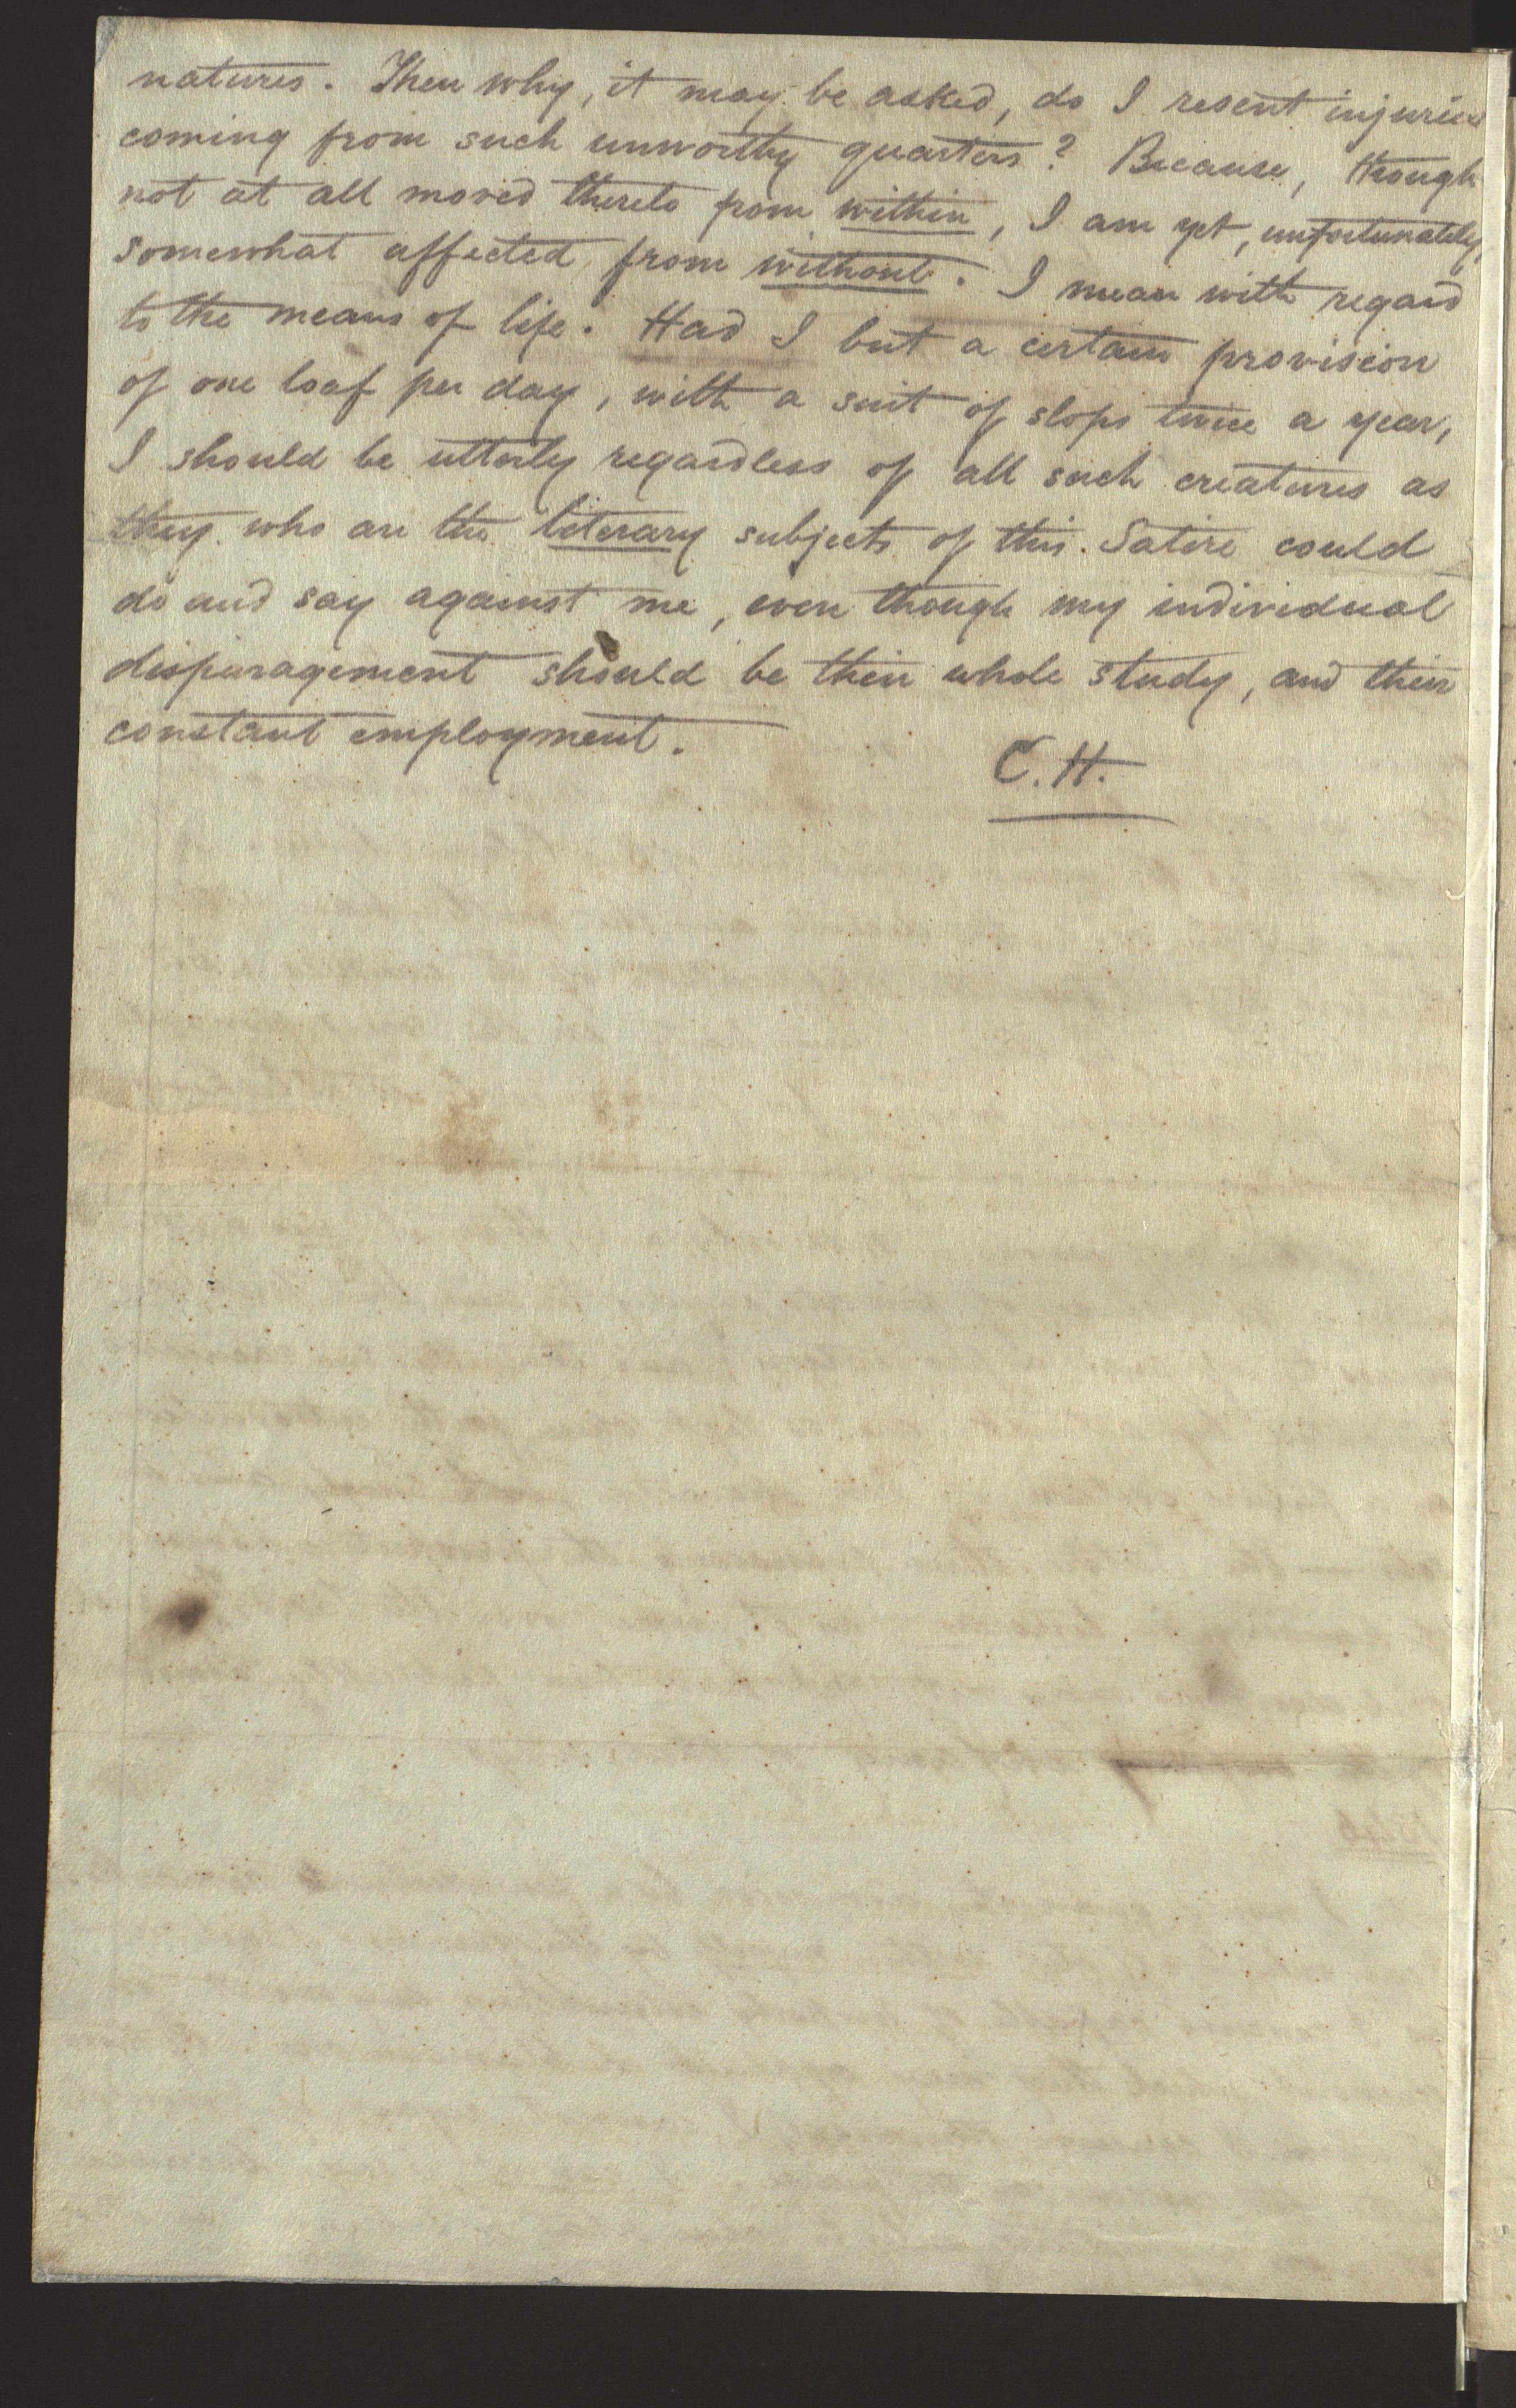 natures. Then why, it may be asked, do I resent injuries
coming from such unworthy quarters? Because, though
not at all moved thereto from within, I am yet, unfortunately,
somewhat affected from without. I mean with regard
to the means of life. Had I but a certain provision
of one loaf per day, with a suit of slops twice a year,
I should be utterly regardless of all such creatures as
they who are the literary subjects of this Satire could
do and say against me, even though my individual
disparagement should be their whole study, and their
constant employment.
C. H.